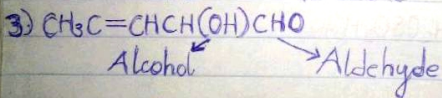 3) CH3C=CHCH(OH)CHO
Alcohol Aldehyde